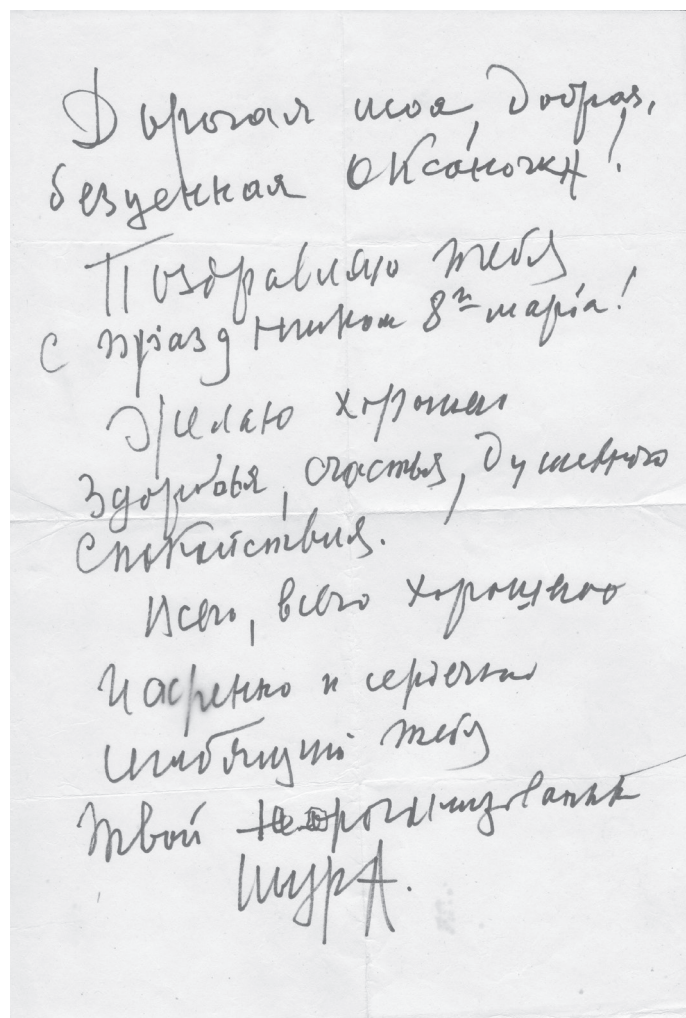 Дорогая моя, добрая,
бесценная Оксаночка!
Поздравляю тебя
с праздником 8го марта!
Желаю хорошего
здоровья, счастья, душевного
спокойствия.
Всего, всего хорошего
Искренно и сердечно
любящий тебя
Твой неорганизованный
ШУРА.